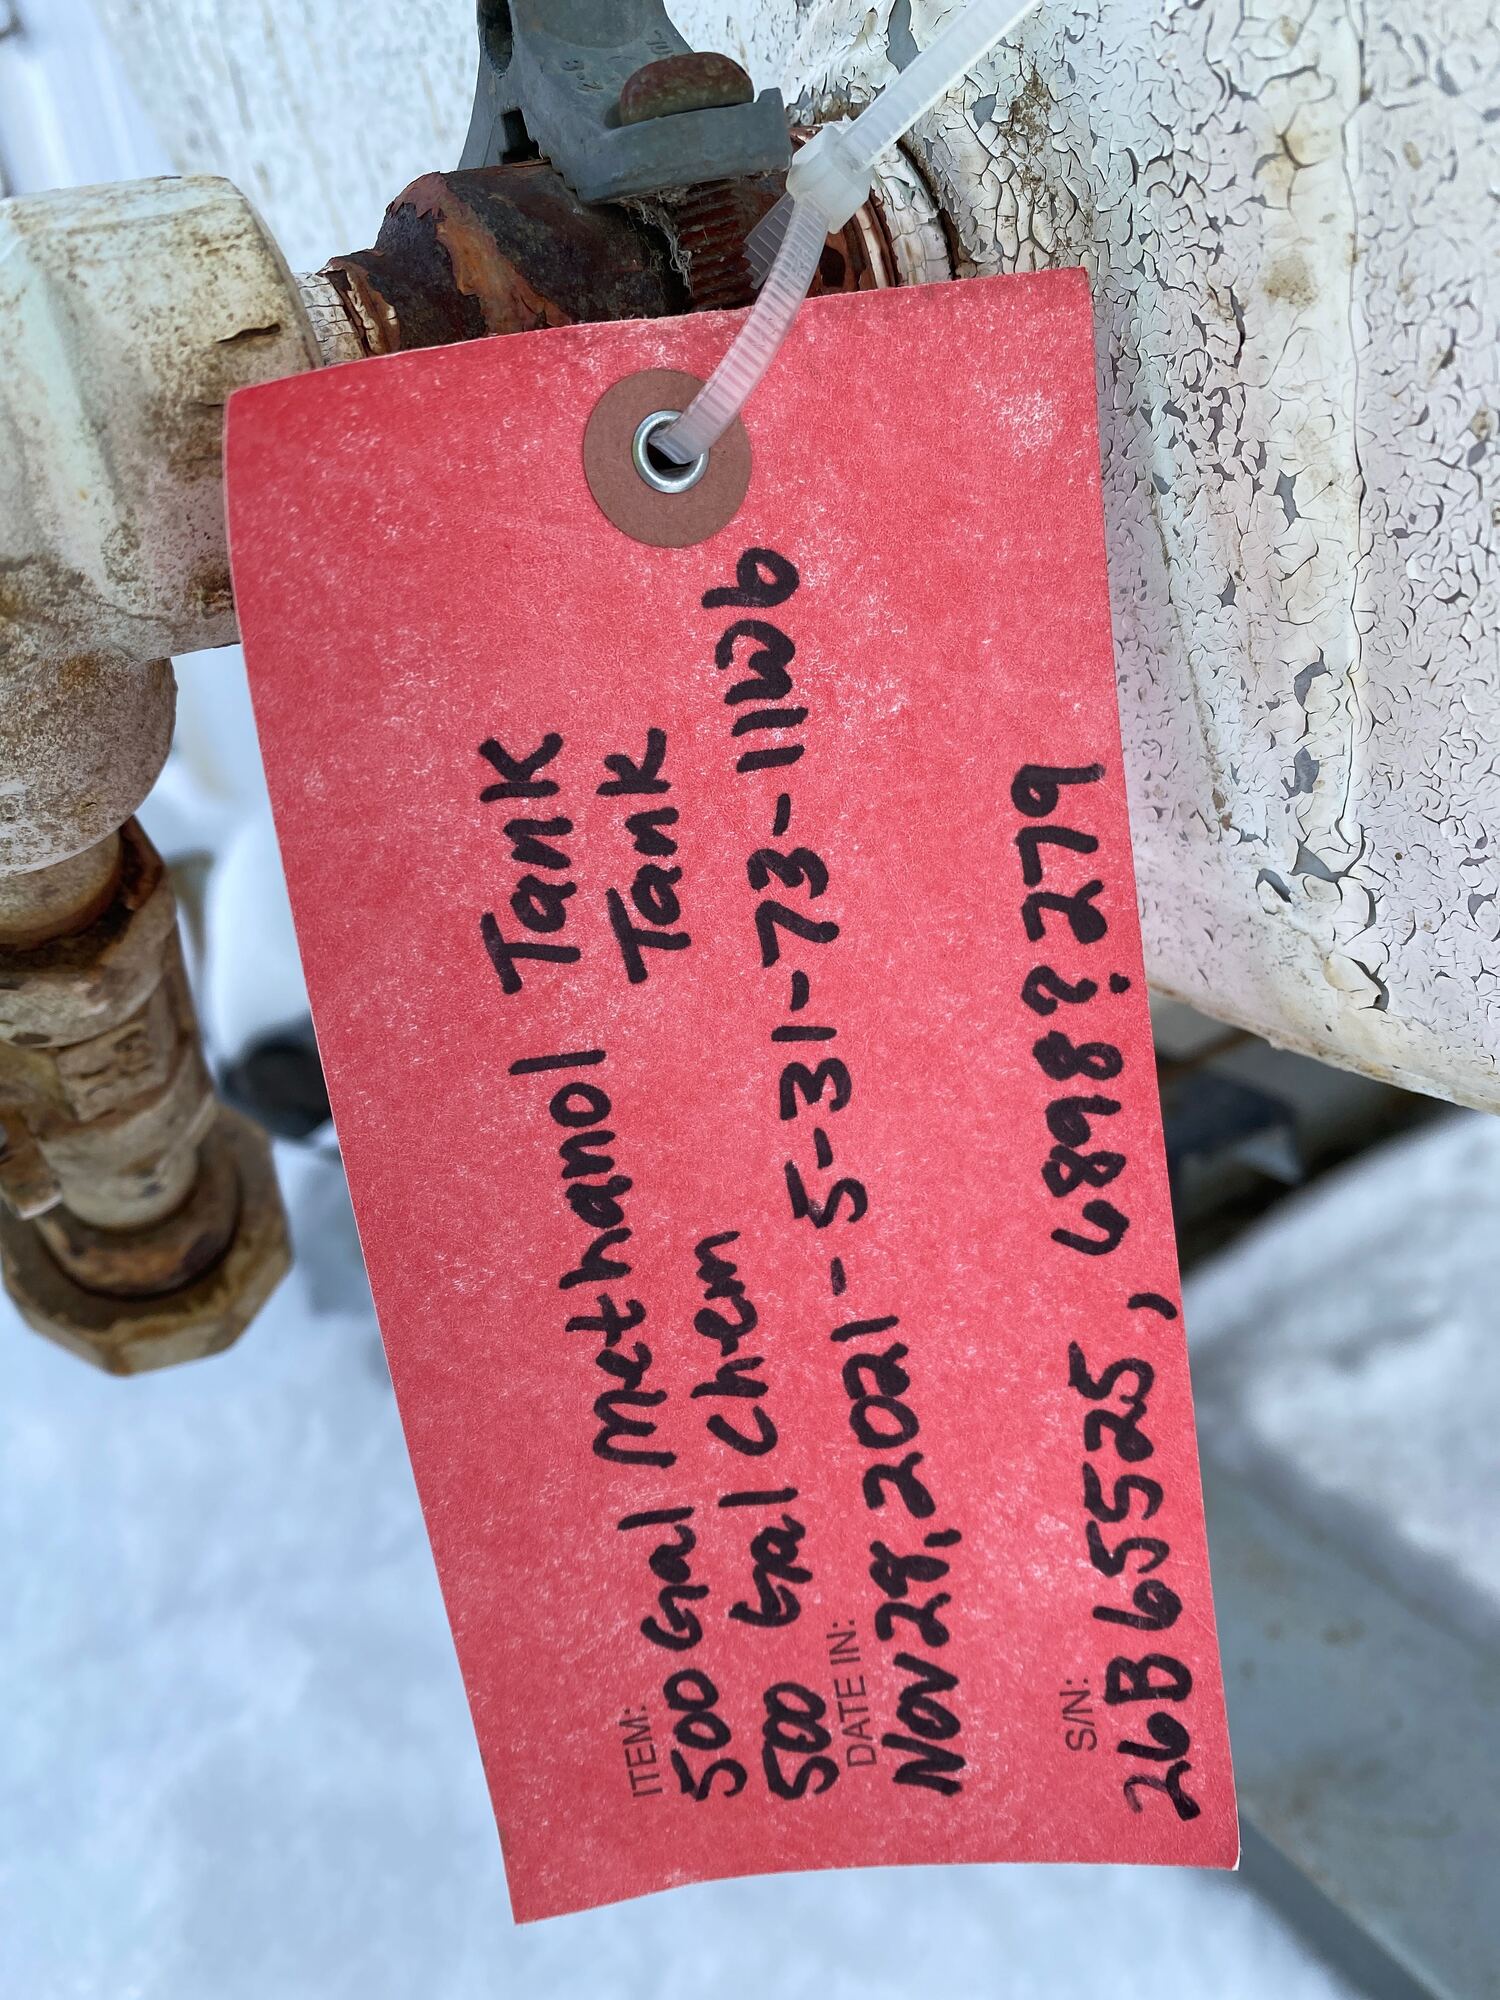 ITEM:
500 Gal Methanol Tank
500 Gal Chem Tank
DATE IN:
Nov 28, 2021 - 5-31-73-11W6
S/N:
26B65525, 6898?279